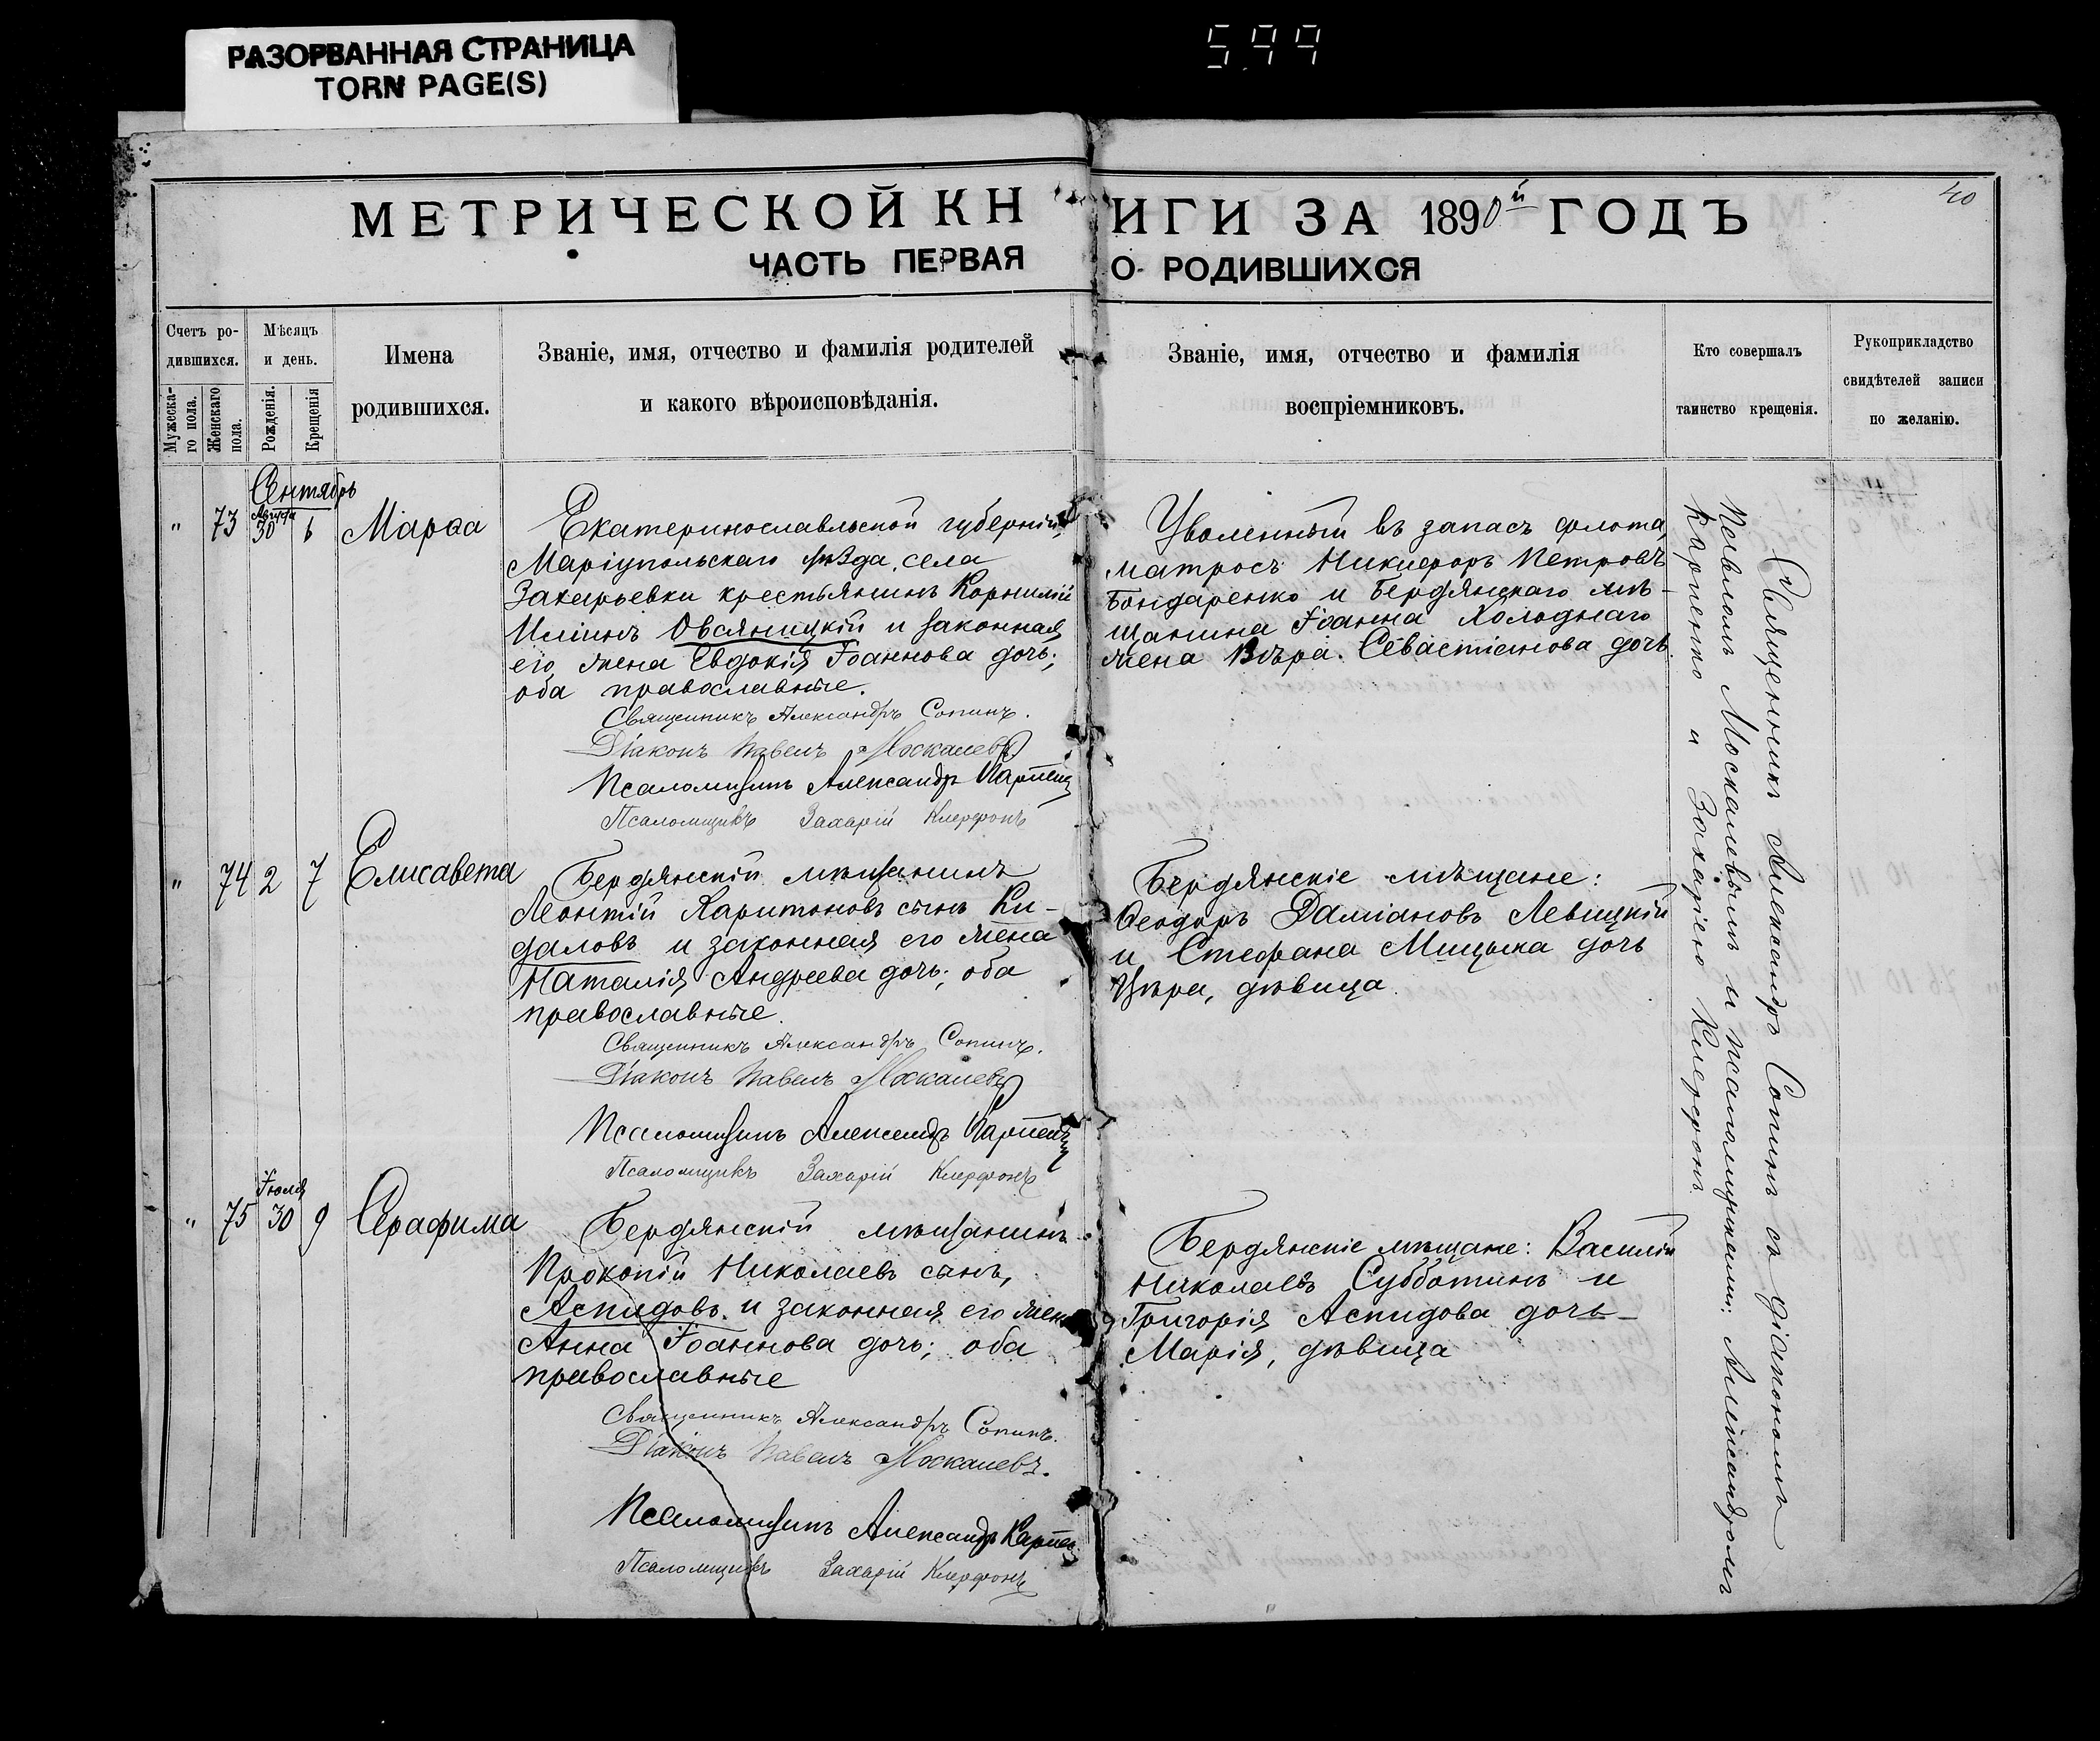 РАЗОРВАННАЯ СТРАНИЦА
TORN PAGE(S)
599
40
МЕТРИЧЕСКОЙ КНИГИ ЗА 1890й ГОДЪ
ЧАСТЬ ПЕРВАЯ О РОДИВШИХСЯ
Счетъ ро-
дившихся.
Мужеска-
го пола.
Женскаго
пола.
Мѣсяцъ
и день.
Рожденія.
Крещенія
Имена
родившихся.
Званіе, имя, отчество и фамилія родителей
и какого вѣроисповѣданія.
Званіе, имя, отчество и фамилія
воспріемниковъ.
Кто совершалъ
таинство крещенія.
Рукоприкладство
свидѣтелей записи
по желанію.
Сентябрь
Августа
" 73 30 6 Марѳа
Екатеринославльской губерніи,
Маріупольскаго уѣзда, села
Захарьевки крестьянинъ Корнилій
Иліинъ Овсяницкій и законная
его жена Евдокія Іоаннова дочь;
оба православные.
Священникъ Александръ Сопинъ.
Діаконъ Павелъ Москалевъ
Псаломщикъ Александръ Карпен
Псаломщикъ Захарій Клерфонъ
Уволенный въ запасъ флота,
матросъ Никифоръ Петровъ
Бондаренко и Бердянскаго мѣ-
щанина Іоанна Холоднаго
жена Вѣра Севастіанова дочь.
" 74 2 7 Елисавета
Бердянскій мѣщанинъ
Леонтій Харитоновъ сынъ Ки-
даловъ и законная его жена
Наталія Андреева дочь; оба
православные.
Священникъ Александръ Сопинъ.
Діаконъ Павелъ Москалевъ
Псаломщикъ Александръ Карпен
Псаломщикъ Захарій Клерфонъ
Бердянскіе мѣщане:
Ѳеодоръ Даміановъ Левицкій
и Стефана Мицыка дочь
Вѣра, дѣвица.
Іюля
" 75 30 9 Серафима
Бердянскій мѣщанинъ
Прокопій Николаевъ сынъ,
Аспидовъ и законная его жена
Анна Іоаннова дочь; оба
православные
Священникъ Александръ Сопинъ.
Діаконъ Павелъ Москалевъ.
Псаломщикъ Александръ Карпен
Псаломщикъ Захарій Клерфонъ
Бердянскіе мѣщане: Василій
Николаевъ Субботинъ и
Григорія Аспидова дочь
Марія, дѣвица
Священникъ Александръ Сопинъ съ діакономъ
Павломъ Москалевымъ и псаломщиками: Александромъ
Карпенко и Захаріею Клерфонъ.